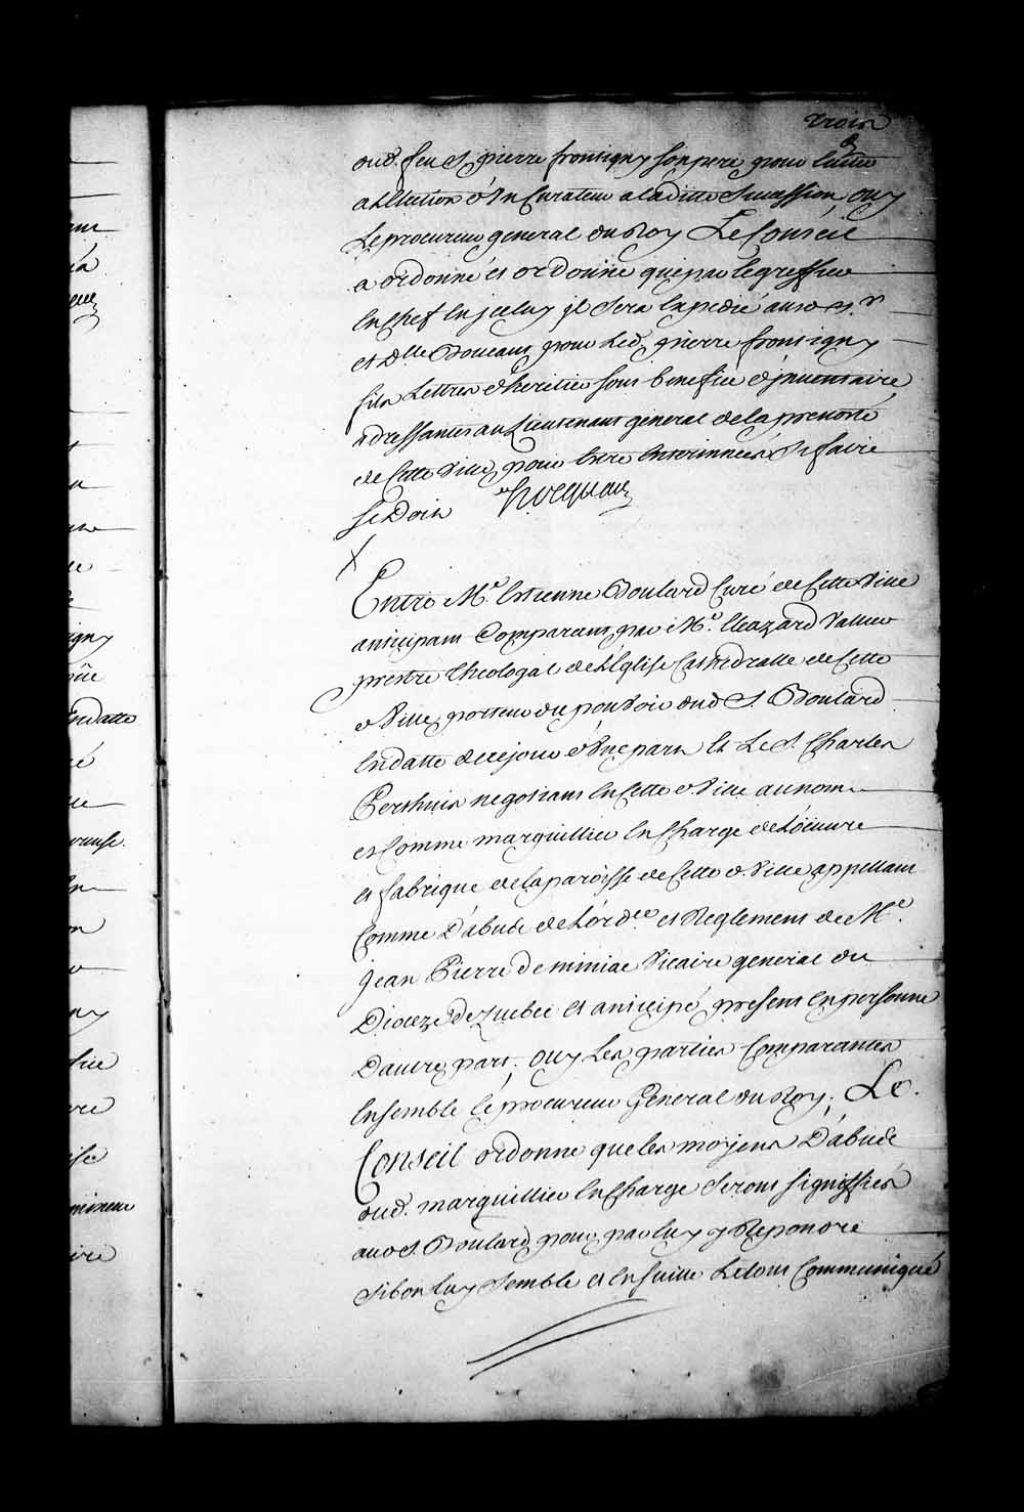 trois
aud. feu S. pierre frontigny son pere pour
a Election d'un Curateur a la ditte Succession, ouy
Le procureur general du Roy Le Conseil
a ordonné et ordonne que par le greffier
En Chef En jceluy jl Sera Expedié
et Dlle Boucaut pour Led. pierre frontigny
fils Lettres d'heritier sous benefice d'jnventaire
adressantes au Lieutenant general de la prevosté
de Cette Ville, pour Estre Enterinnées Si faire
se Doit Hocquart
X
Entre Me. Estienne Boulard Curé de Cette Ville
anticipant Comparant par Me. Eleazard Vallier
prestre theologal de L'Eglise Cathedralle de Cette
d. Ville, porteur du pouvoir dud. S. Boulard
En datte de ce jour d'Une part Et Le S. Charles
Perthuis negotiant En Cette d. Ville au nom
et Comme marguillier En Charge de L'oeuvre
et fabrique de la paroisse de Cette d. Ville appellant
Comme D'abus de L'ord.ce et Reglement de Me.
Jean Pierre De miniac Vicaire general du
Dioceze de Quebec et anticipé, present En personne
D'autre part; ouy Les parties Comparantes
Ensemble le procureur General du Roy; Le.
Conseil ordonne que les moyens D'abus
dud. marguillier En Charge Seront signiffiés
aud. S. Boulard, pour par luy y Repondre
Si bon luy Semble et En Suitte Le tout Communiqué